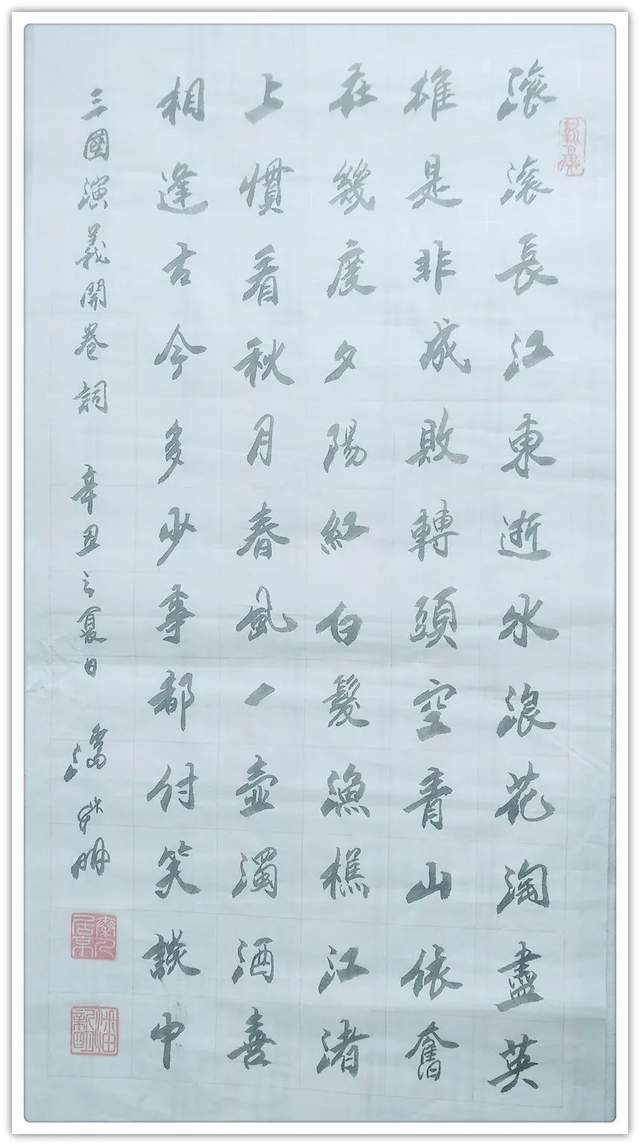 滚滚長江東逝水浪花淘盡英
雄是非成敗轉頭空青山依舊
在幾度夕陽紅白髮漁樵江渚
上慣看秋月春風一壺濁酒喜
相逢古今多少事都付笑談中
三國演義開卷詞 辛丑之夏日 潘新明